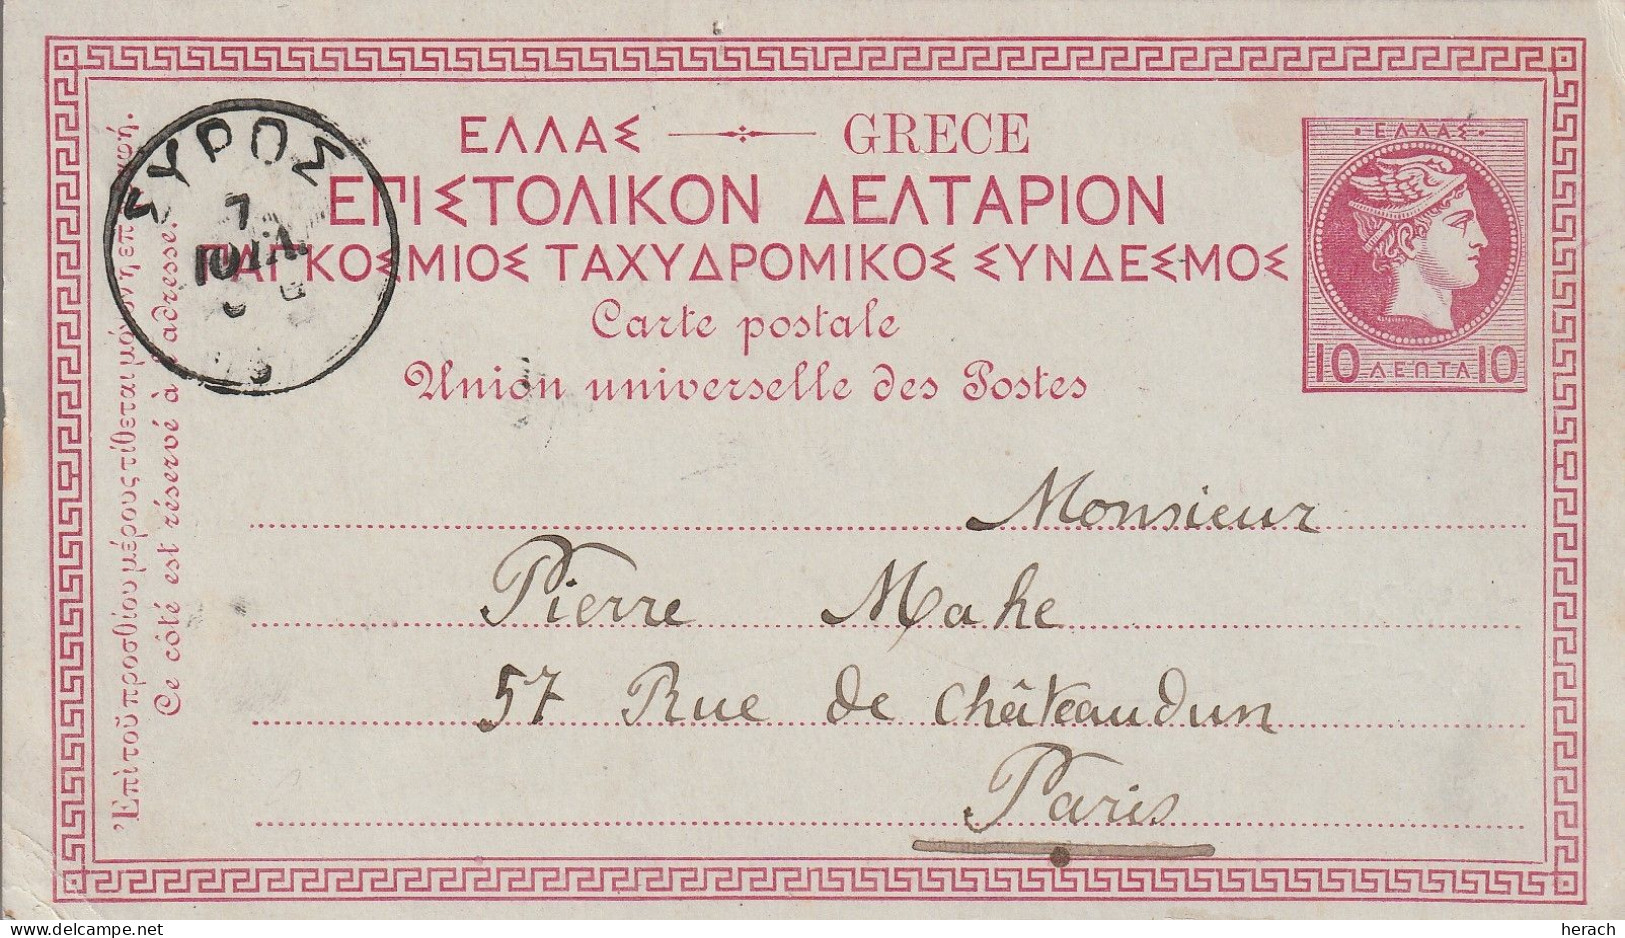 ΕΛΛΑΣ GRECE
ΕΠΙΣΤΟΛΙΚΟΝ ΔΕΛΤΑΡΙΟΝ
ΠΑΓΚΟΣΜΙΟΣ ΤΑΧΥΔΡΟΜΙΚΟΣ ΣΥΝΔΕΣΜΟΣ
Carte postale
Union universelle des Postes
·ΕΛΛΑΣ·
10 ΛΕΠΤΑ 10
ΣΥΡΟΣ
7
ΙΟΥΛ.
Ἐπὶ τοῦ προσθίου μέρους τίθεται μόνον ἡ
Ce côté est réservé à l'adresse.
Monsieur
Pierre Mahe
57 Rue de Châteaudun
Paris
delcampe.net
herach